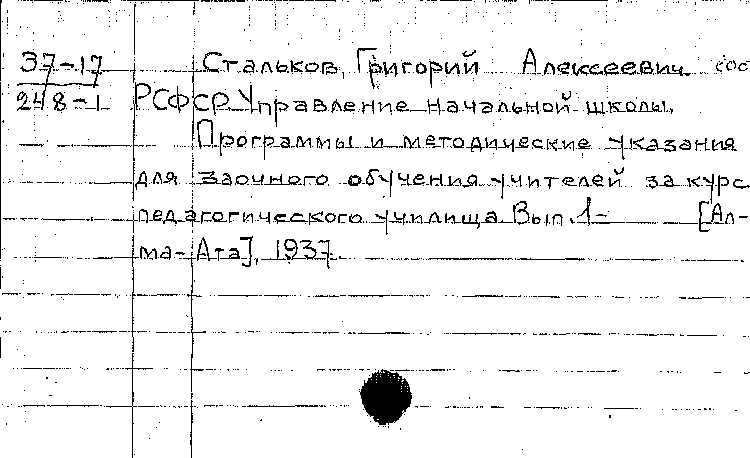 37-17 Стальков, Григорий Алексеевич сос
248-1 РСФСР Управление начальной школы.
Программы и методические указания
для заочного обучения учителей за курс
педагогического училища Вып. 1- [Ал-
ма-Ата], 1937.